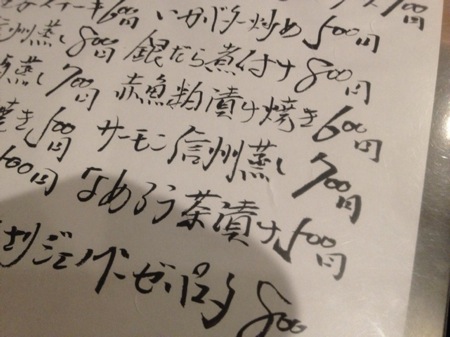 ステーキ 600円 いかバター炒め 500円
信州蒸し 800円 銀だら煮付け 800円
蒸し 700円 赤魚粕漬け焼き 600円
焼き 500円 サーモン信州蒸し 700円
600円 なめろう茶漬け 500円
ジェノベーゼ 800